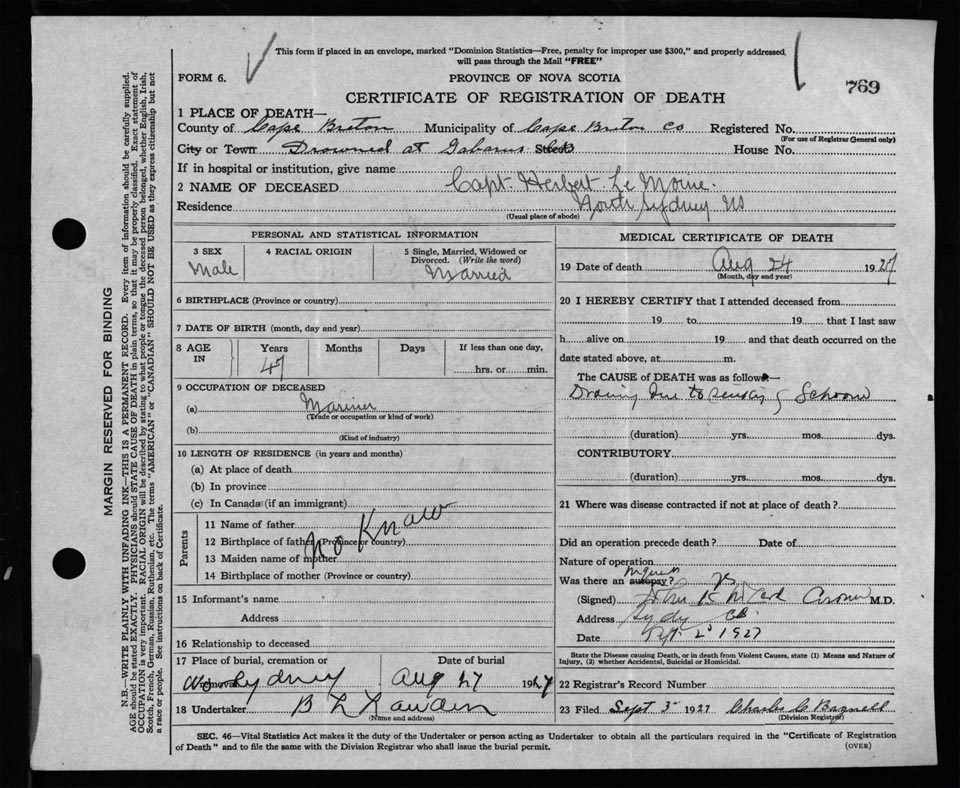 This form if placed in an envelope, marked "Dominion Statistics—Free, penalty for improper use $300," and properly addressed
will pass through the Mail "FREE"
FORM 6. PROVINCE OF NOVA SCOTIA 769
CERTIFICATE OF REGISTRATION OF DEATH
1 PLACE OF DEATH—
County of Cape Breton Municipality of Cape Breton Co Registered No.
(For use of Registrar General only)
City or Town Drowned at Gabarus Street CB House No.
If in hospital or institution, give name
2 NAME OF DECEASED Capt. Herbert Le Moine.
Residence North Sydney NS
(Usual place of abode)
PERSONAL AND STATISTICAL INFORMATION
3 SEX 4 RACIAL ORIGIN 5 Single, Married, Widowed or
Divorced. (Write the word)
Male Married
6 BIRTHPLACE (Province or country)
7 DATE OF BIRTH (month, day and year)
8 AGE IN Years Months Days If less than one day,
47 hrs. or min.
9 OCCUPATION OF DECEASED
(a) Mariner
(Trade or occupation or kind of work)
(b)
(Kind of industry)
10 LENGTH OF RESIDENCE (in years and months)
(a) At place of death
(b) In province
(c) In Canada (if an immigrant)
Parents
11 Name of father
12 Birthplace of father (Province or country)
13 Maiden name of mother
14 Birthplace of mother (Province or country)
No Know
15 Informant's name
Address
16 Relationship to deceased
17 Place of burial, cremation or Date of burial
removal No Sydney Aug 27 1927
18 Undertaker B L
(Name and address)
MEDICAL CERTIFICATE OF DEATH
19 Date of death Aug 24 1927
(Month, day and year)
20 I HEREBY CERTIFY that I attended deceased from
19 to 19 that I last saw
h alive on 19 and that death occurred on the
date stated above, at m.
The CAUSE of DEATH was as follows:—
due to of
(duration) yrs. mos. dys.
CONTRIBUTORY
(duration) yrs. mos. dys.
21 Where was disease contracted if not at place of death?
Did an operation precede death? Date of
Nature of operation
Was there an autopsy?
(Signed) M.D.
Address CB
Date 2 1927
State the Disease causing Death, or in death from Violent Causes, state (1) Means and Nature of
Injury, (2) whether Accidental, Suicidal or Homicidal.
22 Registrar's Record Number
23 Filed Sept 3 1927 Charles C Bagnell
(Division Registrar)
SEC. 46—Vital Statistics Act makes it the duty of the Undertaker or person acting as Undertaker to obtain all the particulars required in the "Certificate of Registration
of Death" and to file the same with the Division Registrar who shall issue the burial permit.
(OVER)
MARGIN RESERVED FOR BINDING
N.B.—WRITE PLAINLY WITH UNFADING INK—THIS IS A PERMANENT RECORD. Every item of information should be carefully supplied.
AGE should be stated EXACTLY. PHYSICIANS should STATE CAUSE OF DEATH in plain terms, so that it may be properly classified. Exact statement of
OCCUPATION is very important. RACIAL ORIGIN will be described by stating to what people or tongue the deceased person belonged, whether English, Irish,
Scotch, French, German, Russian, Ruthenian, etc. The terms "AMERICAN" or "CANADIAN" SHOULD NOT BE USED as they express citizenship but not
a race or people. See instructions on back of Certificate.